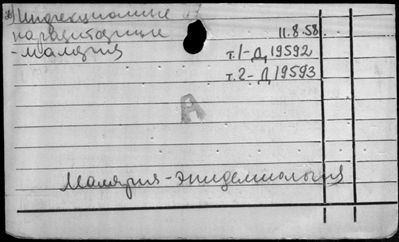 Инфекционные и
паразитарные
- малярия
11.8.58
т.1-Д 19592
т.2-Д 19593
А
Малярия-эпидемиология